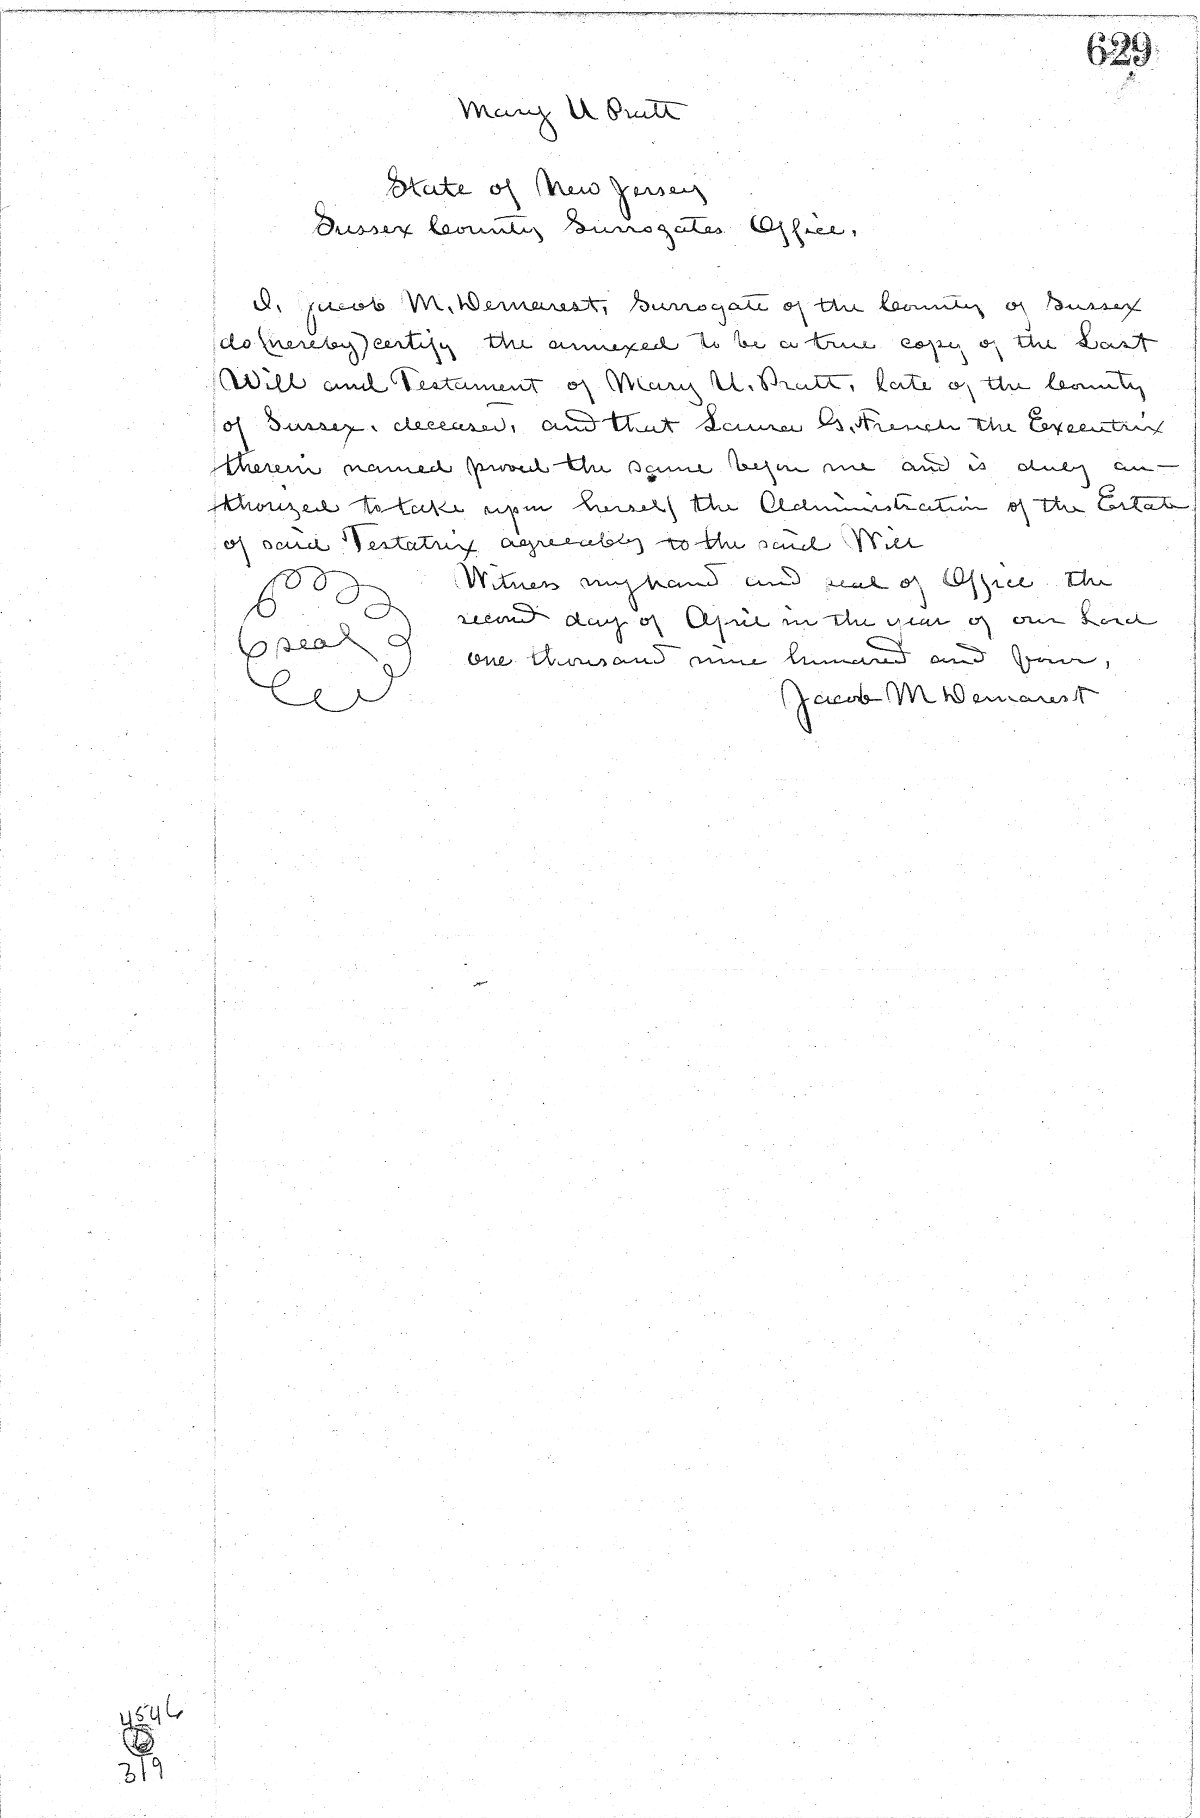 629
Mary U Pratt
State of New Jersey
Sussex County Surrogates Office.
I, Jacob M. Demarest, Surrogate of the County of Sussex
do (hereby) certify the annexed to be a true copy of the Last
Will and Testament of Mary U. Pratt, late of the County
of Sussex, deceased, and that Laura G. French the Executrix
therein named proved the same before me and is duly au-
thorized to take upon herself the Administration of the Estate
of said Testatrix agreeably to the said Will
Witness my hand and seal of Office the
second day of April in the year of our Lord
seal
one thousand nine hundred and four,
Jacob M Demarest
4546
319